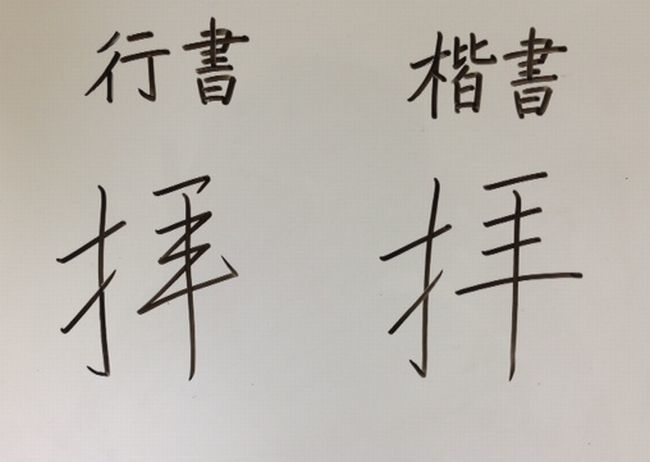 行書 楷書
拝 拝